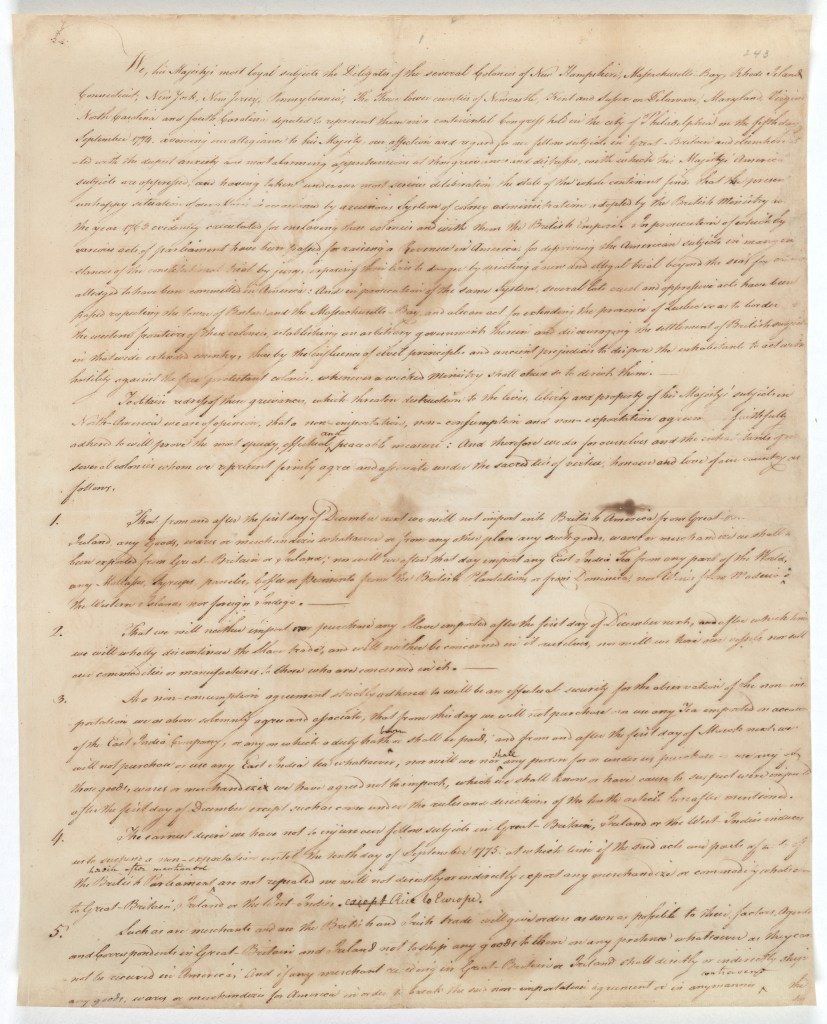 1
243
We, his Majesty's most loyal subjects the Delegates of the several Colonies of New Hampshire, Massachusetts-Bay, Rhode Island
Connecticut, New York, New Jersey, Pennsylvania, The Three lower counties of Newcastle, Kent and Sussex on Delaware, Maryland, Virginia
North Carolina and South Carolina deputed to represent them in a continental Congress held in the city of Philadelphia on the fifth day
September 1774. avowing our allegiance to his Majesty, our affection and regard for our fellow subjects in Great-Britain and elsewhere
ted with the deepest anxiety and most alarming apprehensions at those grievances and distresses, with which his Majesty's American
subjects are oppressed, and having taken under our most serious deliberation the state of the whole continent find, that the present
unhappy situation of our affairs is occasioned by a ruinous System of colony administration adopted by the British Ministry in
the year 1763 evidently calculated for enslaving these colonies and with them the British Empire. In prosecution of which system
various acts of parliament have been passed for raising a Revenue in America, for depriving the American subjects in many in
stances of the constitutional trial by jury, exposing their lives to danger by directing a new and illegal trial beyond the seas for crimes
alledged to have been committed in America: And in prosecution of the same System, several late cruel and oppressive acts have been
passed respecting the town of Boston and the Massachusetts-Bay, and also an act for extending the province of Quebec so as to border
the western frontiers of these colonies, establishing an arbitrary government therein and discouraging the settlement of British subjects
in that wide extended country; thus by the influence of civil principles and ancient prejudices to dispose the inhabitants to act with
hostility against the free protestant colonies, whenever a wicked Ministry shall chuse so to direct them.
To obtain redress of these grievances, which threaten destruction to the lives, liberty and property of his Majesty's subjects in
North America we are of opinion, that a non-importation, non-consumption and non-exportation agreement faithfully
adhered to will prove the most speedy, effectual and peaceable measure: And therefore we do for ourselves and the inhabitants of
several colonies whom we represent firmly agree and associate under the sacred ties of virtue, honour and love of our country as
follows,
1. That from and after the first day of December next we will not import into British America from Great
Ireland any Goods, wares or merchandize whatsoever or from any other place any such goods, wares or merchandize as shall
been exported from Great-Britain or Ireland; nor will we after that day import any East India Tea from any part of the World,
any Molasses, Syrups, paneles, Coffee or Piemento from the British Plantations or from Dominica; nor Wines from Madeira or
the Western Islands nor foreign Indigo.
2. That we will neither import nor purchase any Slave imported after the first day of December next, and after which time
we will wholly discontinue the Slave trade, and will neither be concerned in it ourselves, nor will we hire our vessels nor sell
our commodities or manufactures to those who are concerned in it.
3. As a non-consumption agreement strictly adhered to will be an effectual security for the observation of the non-im
portation we as above solemnly agree and associate, that from this day we will not purchase or use any Tea imported on account
of the East India Company, or any on which a duty hath been or shall be paid; and from and after the first day of March next we
will not purchase or use any East India tea whatsoever, nor will we nor shall any person for or under us purchase or use any of
those goods, wares or merchandize we have agreed not to import, which we shall know or have cause to suspect were imported
after the first day of December except such as come under the rules and directions of the tenth article hereafter mentioned.
4. The earnest desire we have not to injure our fellow subjects in Great-Britain, Ireland or the West-Indies induces
us to suspend a non-exportation until the tenth day of September 1775. at which time if the said acts and parts of acts of
the British Parliament herein after mentioned are not repealed we will not directly or indirectly export any merchandize or commodity whatsoever
to Great-Britain, Ireland or the West Indies except Rice to Europe.
5. Such as are merchants and use the British and Irish trade will give orders as soon as possible to their factors, Agents
and Correspondents in Great-Britain and Ireland not to ship any goods to them on any pretence whatsoever as they can
not be received in America; And if any merchant residing in Great-Britain or Ireland shall directly or indirectly ship
any goods, wares or merchandizes for America in order to break the said non-importation agreement or in any manner contravene the